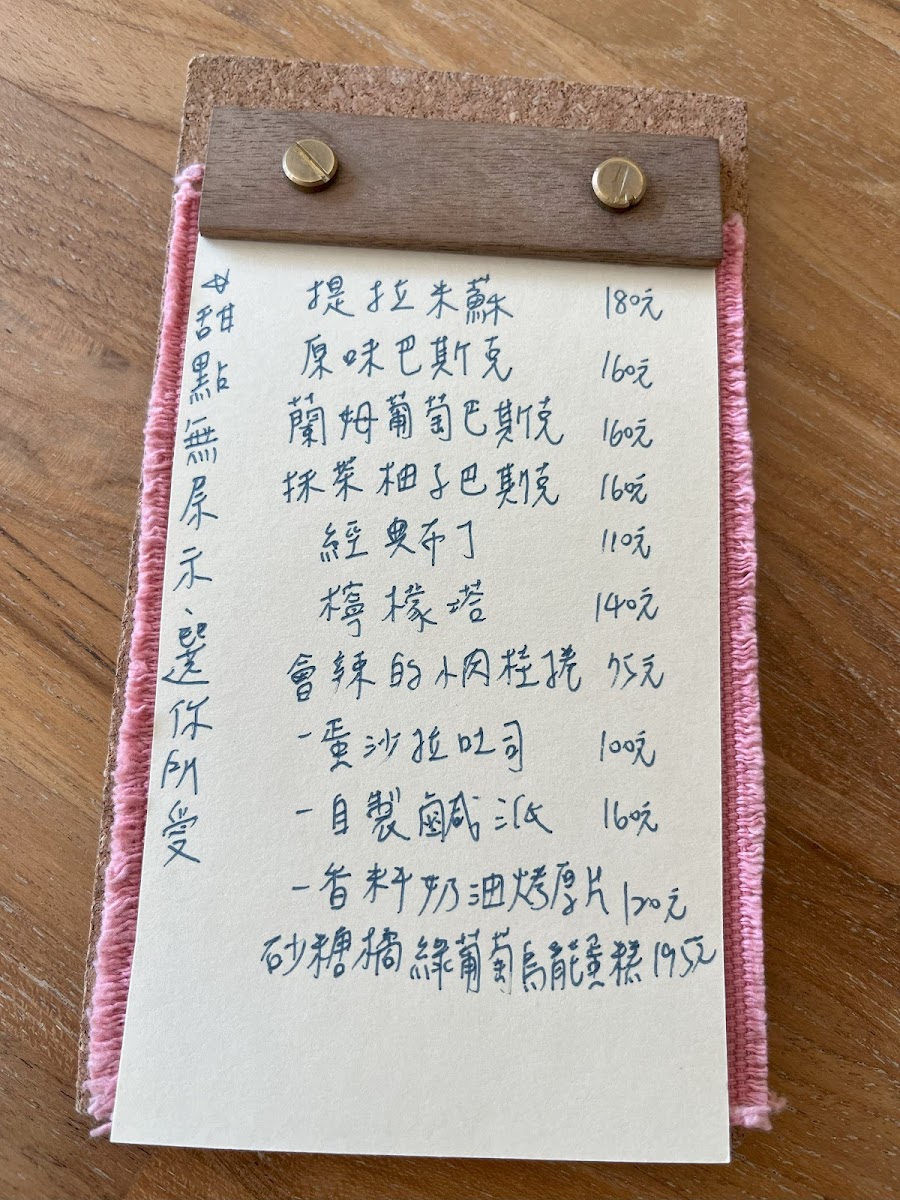 甜點無展示、選你所愛
提拉米蘇 180元
原味巴斯克 160元
蘭姆葡萄巴斯克 160元
抹茶柚子巴斯克 160元
經典布丁 110元
檸檬塔 140元
會辣的小肉桂捲 75元
-蛋沙拉吐司 100元
-自製鹹派 160元
-香料奶油烤厚片 120元
砂糖橘綠葡萄烏龍蛋糕 195元